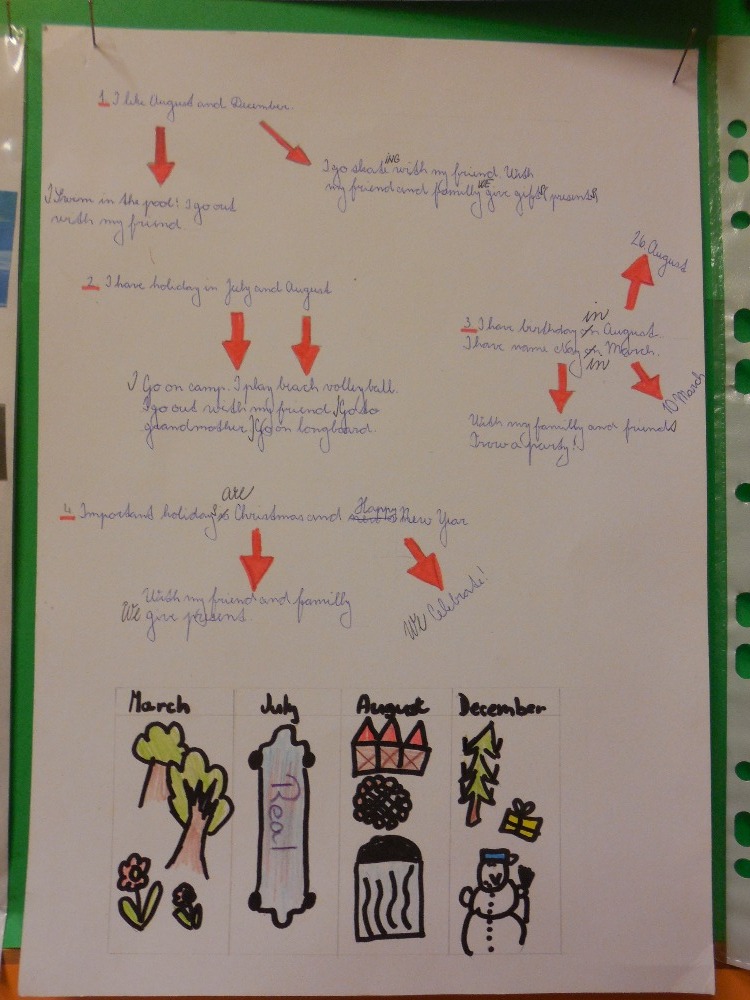 1. I like August and December.
I swim in the pool! I go out
with my friend
I go skate ING with my friend. With
my friend and familly WE give gifts presents
2. I have holiday in July and August
I Go on camp. I play beach volleyball.
I go out with my friend I Go to
grandmother I Go on longboard.
26. August
3 I have birthday in August.
I have name day in March.
10 March
With my familly and friends
I row a party!
4 Important holidays are Christmas and Happy New Year
With my friend and familly
We give present
We Celebrate!
March July August December
Real